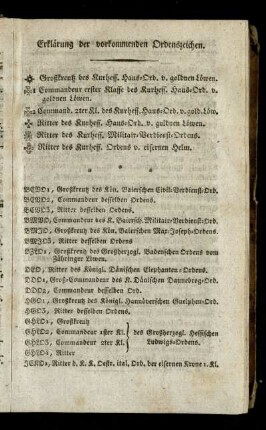 Erklärung der vorkommenden Ordenszeichen.
Großkreutz des Kurheff. Haus-Ord. v. goldnen Löwen.
Commandeur erster Klasse des Kurheff. Haus-Ord. v.
goldnen Löwen.
Command. 2ter Kl. des Kurheff. Haus-Ord. v. gold. Löw.
Ritter des Kurheff. Haus-Ord. v. goldnen Löwen.
Ritter des Kurheff. Militair-Verdienst-Ordens.
Ritter des Kurheff. Ordens v. eisernen Helm.
Großkreutz des Kön. Baierschen Civil-Verdienst-Ord.
Commandeur desselben Ordens.
Ritter desselben Ordens.
Commandeur des K. Baiersch. Militair-Verdienst-Ord.
Großkreutz des Kön. Baierschen Max-Joseph-Ordens.
BMJO3, Ritter desselben Ordens
Großkreutz des Großherzogl. Badenschen Ordens vom
Zähringer Löwen.
DEO, Ritter des Königl. Dänischen Elephanten-Ordens.
DDO1, Großcommandeur des K. Dänischen Dannebrog-Ord.
DDO2, Commandeur desselben Ord.
HGO1, Großkreutz des Königl. Hannöverschen Guelphen-Ord.
HGO3, Ritter desselben Ordens.
GHLO1, Großkreutz
GHLO2, Commandeur 1ster Kl. des Großherzogl. Hessischen
GHLO3, Commandeur 2ter Kl. Ludwigs-Ordens.
GHLO4, Ritter
Ritter d. K. K. Oestr. ital. Ord. der eisernen Krone 1. Kl.